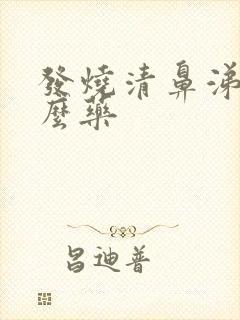 發燒清鼻涕
麼藥
昌迪普